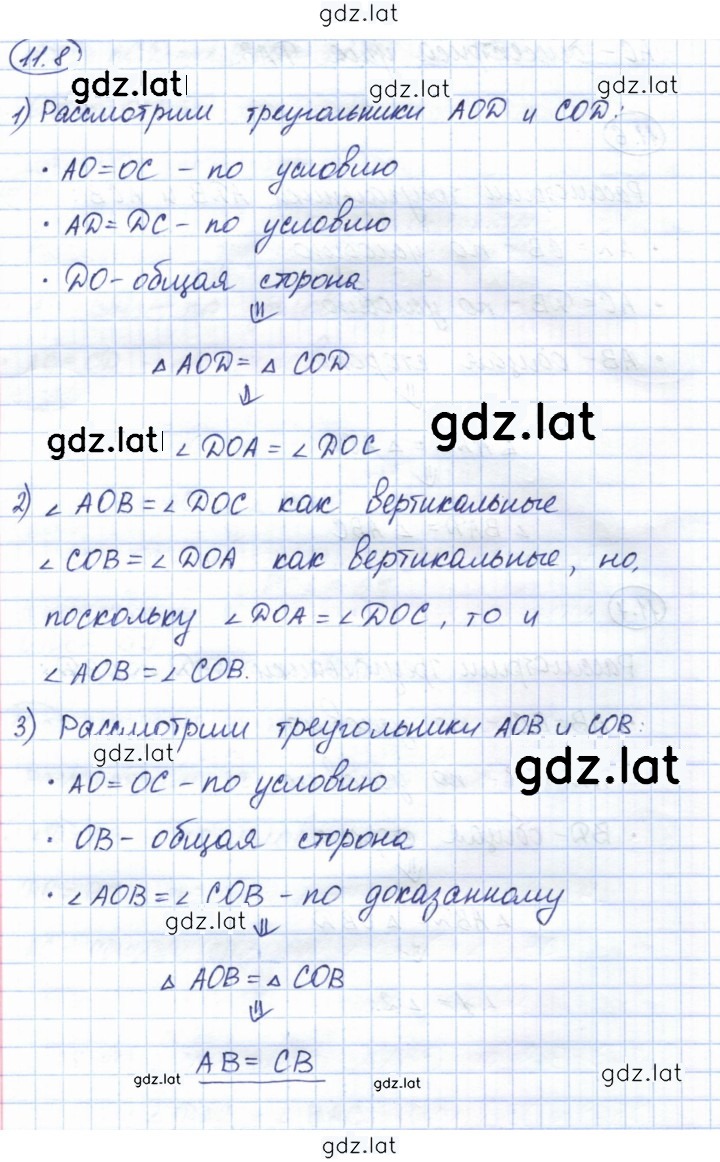 gdz.lat
11.8
gdz.lat gdz.lat gdz.lat
1) Рассмотрим треугольники AOD и COD:
· AO=OC – по условию
· AD=DC – по условию
· DO – общая сторона
⇓
△ AOD = △ COD
⇓
gdz.lat ∠ DOA = ∠ DOC gdz.lat
2) ∠ AOB = ∠ DOC как вертикальные
∠ COB = ∠ DOA как вертикальные, но,
поскольку ∠ DOA = ∠ DOC, то и
∠ AOB = ∠ COB.
3) Рассмотрим треугольники AOB и COB:
gdz.lat gdz.lat
· AO = OC – по условию
· OB – общая сторона
· ∠ AOB = ∠ COB – по доказанному
gdz.lat ⇓
△ AOB = △ COB
⇓
AB = CB
gdz.lat gdz.lat gdz.lat
gdz.lat